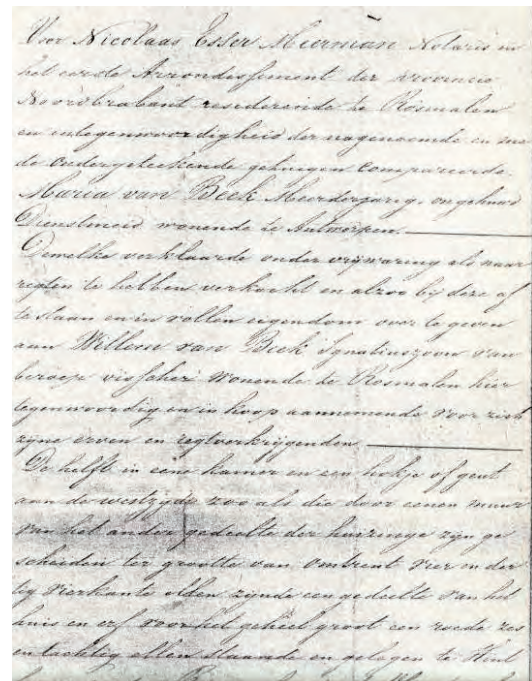 Voor Nicolaas Esser Meerman Notaris in
het eerste Arrondissement der provincie
Noordbrabant residerende te Rosmalen
en in tegenwoordigheid der nagenoemde en me
de ondergeteekende getuigen compareerde.
Maria van Beek Meerderjarig, ongehuwd
Dienstmeid wonende te Antwerpen.
Dewelke verklaarde onder vrijwaring als naar
regten te hebben verkocht en alzoo bij deze af
te staan en in vollen eigendom over te geven
aan Willem van Beek Ignatiuszoon van
beroep visscher wonende te Rosmalen hier
tegenwoordig en in koop aannemende voor zich
zijne erven en regtverkrijgenden.
De helft in eene kamer en een hokje of
aan de westzijde zoo als die door eenen muur
van het ander gedeelte der huizinge zijn ge
scheiden ter grootte van omtrent vier en der
tig vierkante ellen zijnde een gedeelte van het
huis en erf voor het geheel groot een roede zes
en tachtig ellen staande en gelegen te